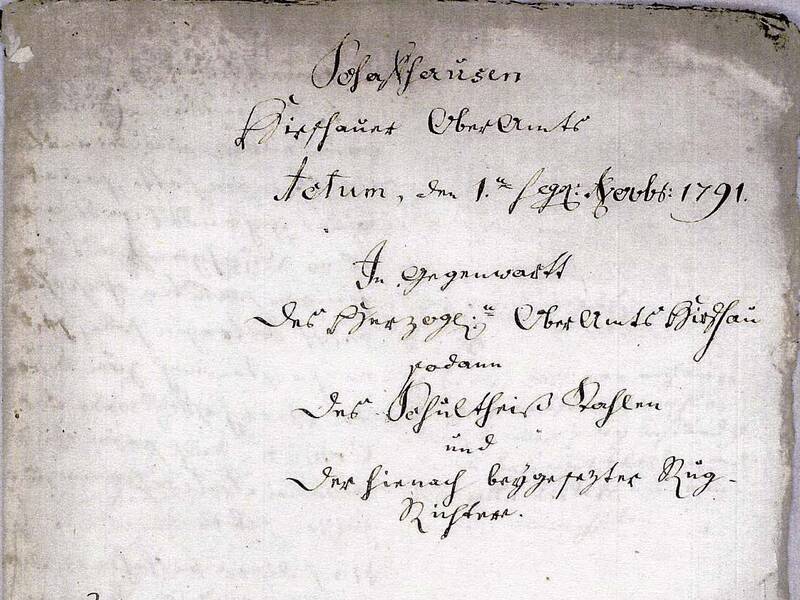 Schafhausen
Hirschauer OberAmts
Actum, den 1.ten seqq: Novbr: 1791.
In Gegenwartt
des Herzogl:n OberAmts Hirschau
sodann
des Schultheiß Kahlen
und
der hienach beygesezter Rug-
Richtere.